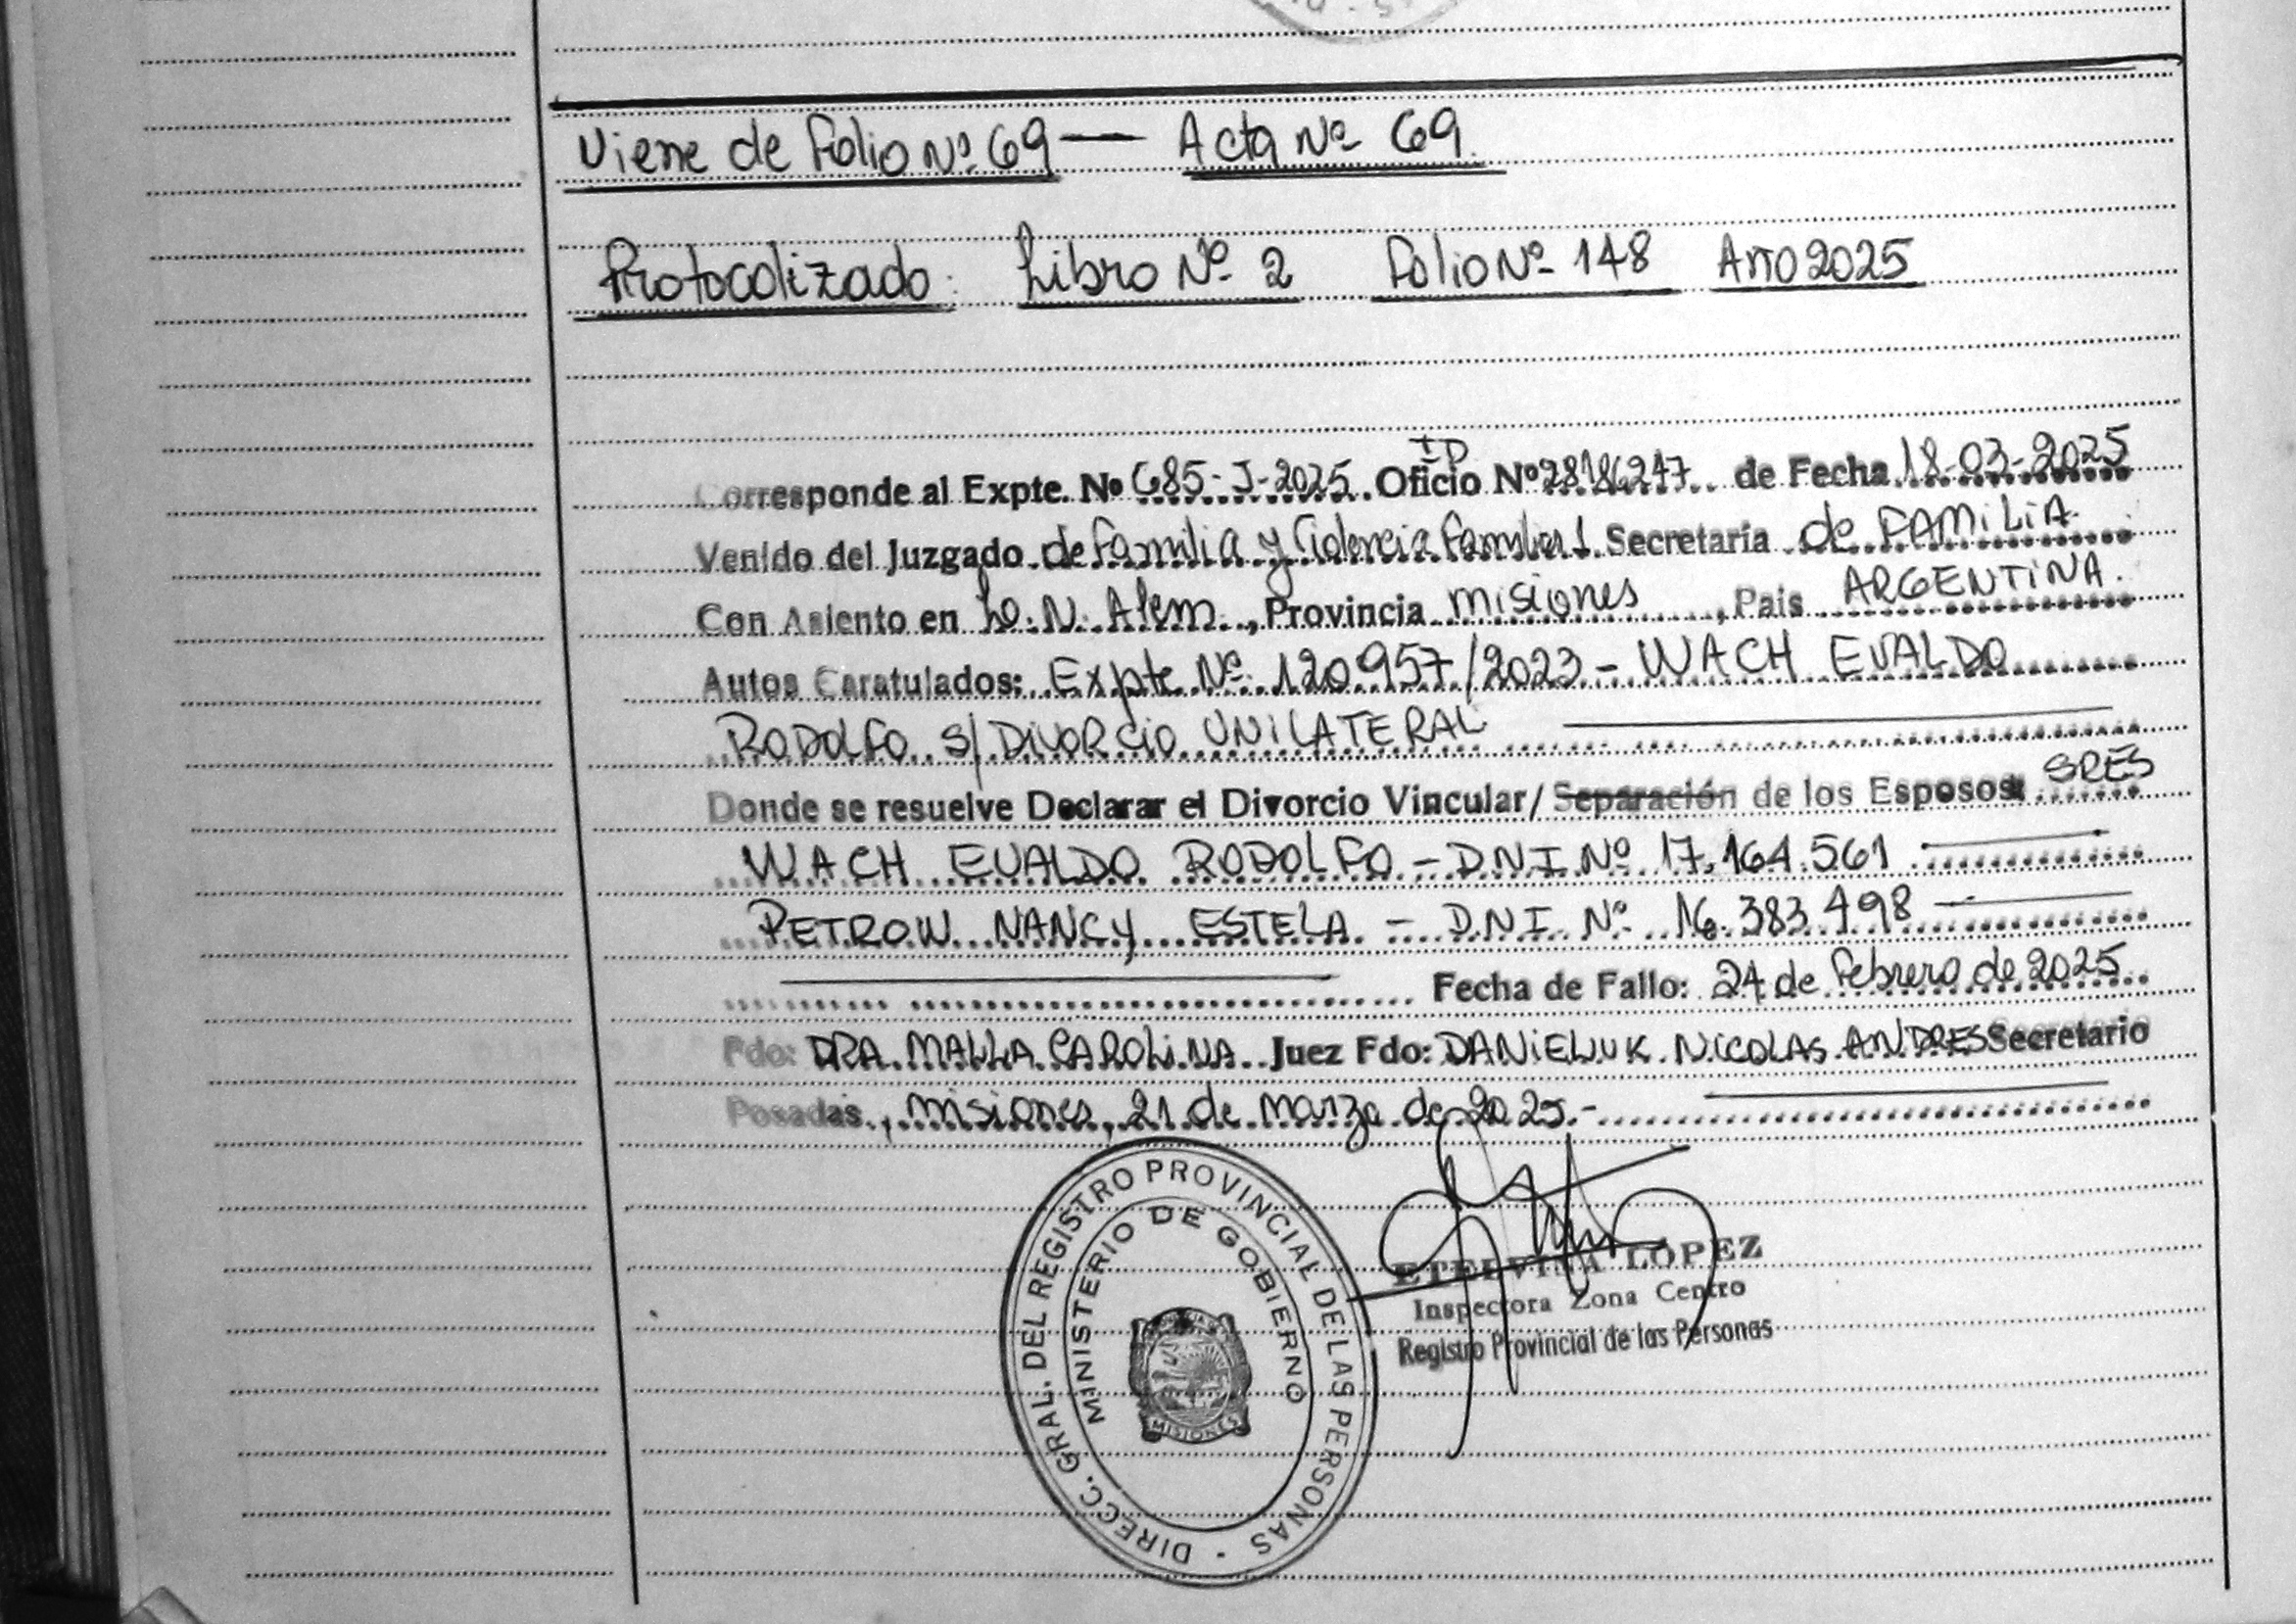 Viene de Folio Nº 69 — Acta Nº 69.
Protocolizado: Libro Nº 2 Folio Nº 148 Año 2025
Corresponde al Expte. Nº 685-J-2025. Oficio ID Nº 28186247 de Fecha 18-03-2025
Venido del Juzgado de Familia y Violencia Familiar 1. Secretaría de FAMILIA.
Con Asiento en L.N. Alem, Provincia Misiones, País ARGENTINA.
Autos Caratulados: Expte Nº 120957/2023 - WACH EVALDO
RODOLFO S/DIVORCIO UNILATERAL
Donde se resuelve Declarar el Divorcio Vincular/Separación de los Esposos: SRES
WACH EVALDO RODOLFO - D.N.I. Nº 17.164.561
PETROW NANCY ESTELA - D.N.I. Nº 16.383.498
Fecha de Fallo: 24 de Febrero de 2025.
Fdo: DRA. MALLA CAROLINA. Juez Fdo: DANIELUK NICOLAS ANDRES Secretario
Posadas, Misiones, 21 de Marzo de 2025.-
DIRECC. GRAL. DEL REGISTRO PROVINCIAL DE LAS PERSONAS
MINISTERIO DE GOBIERNO
MISIONES
ETELVINA LOPEZ
Inspectora Zona Centro
Registro Provincial de las Personas